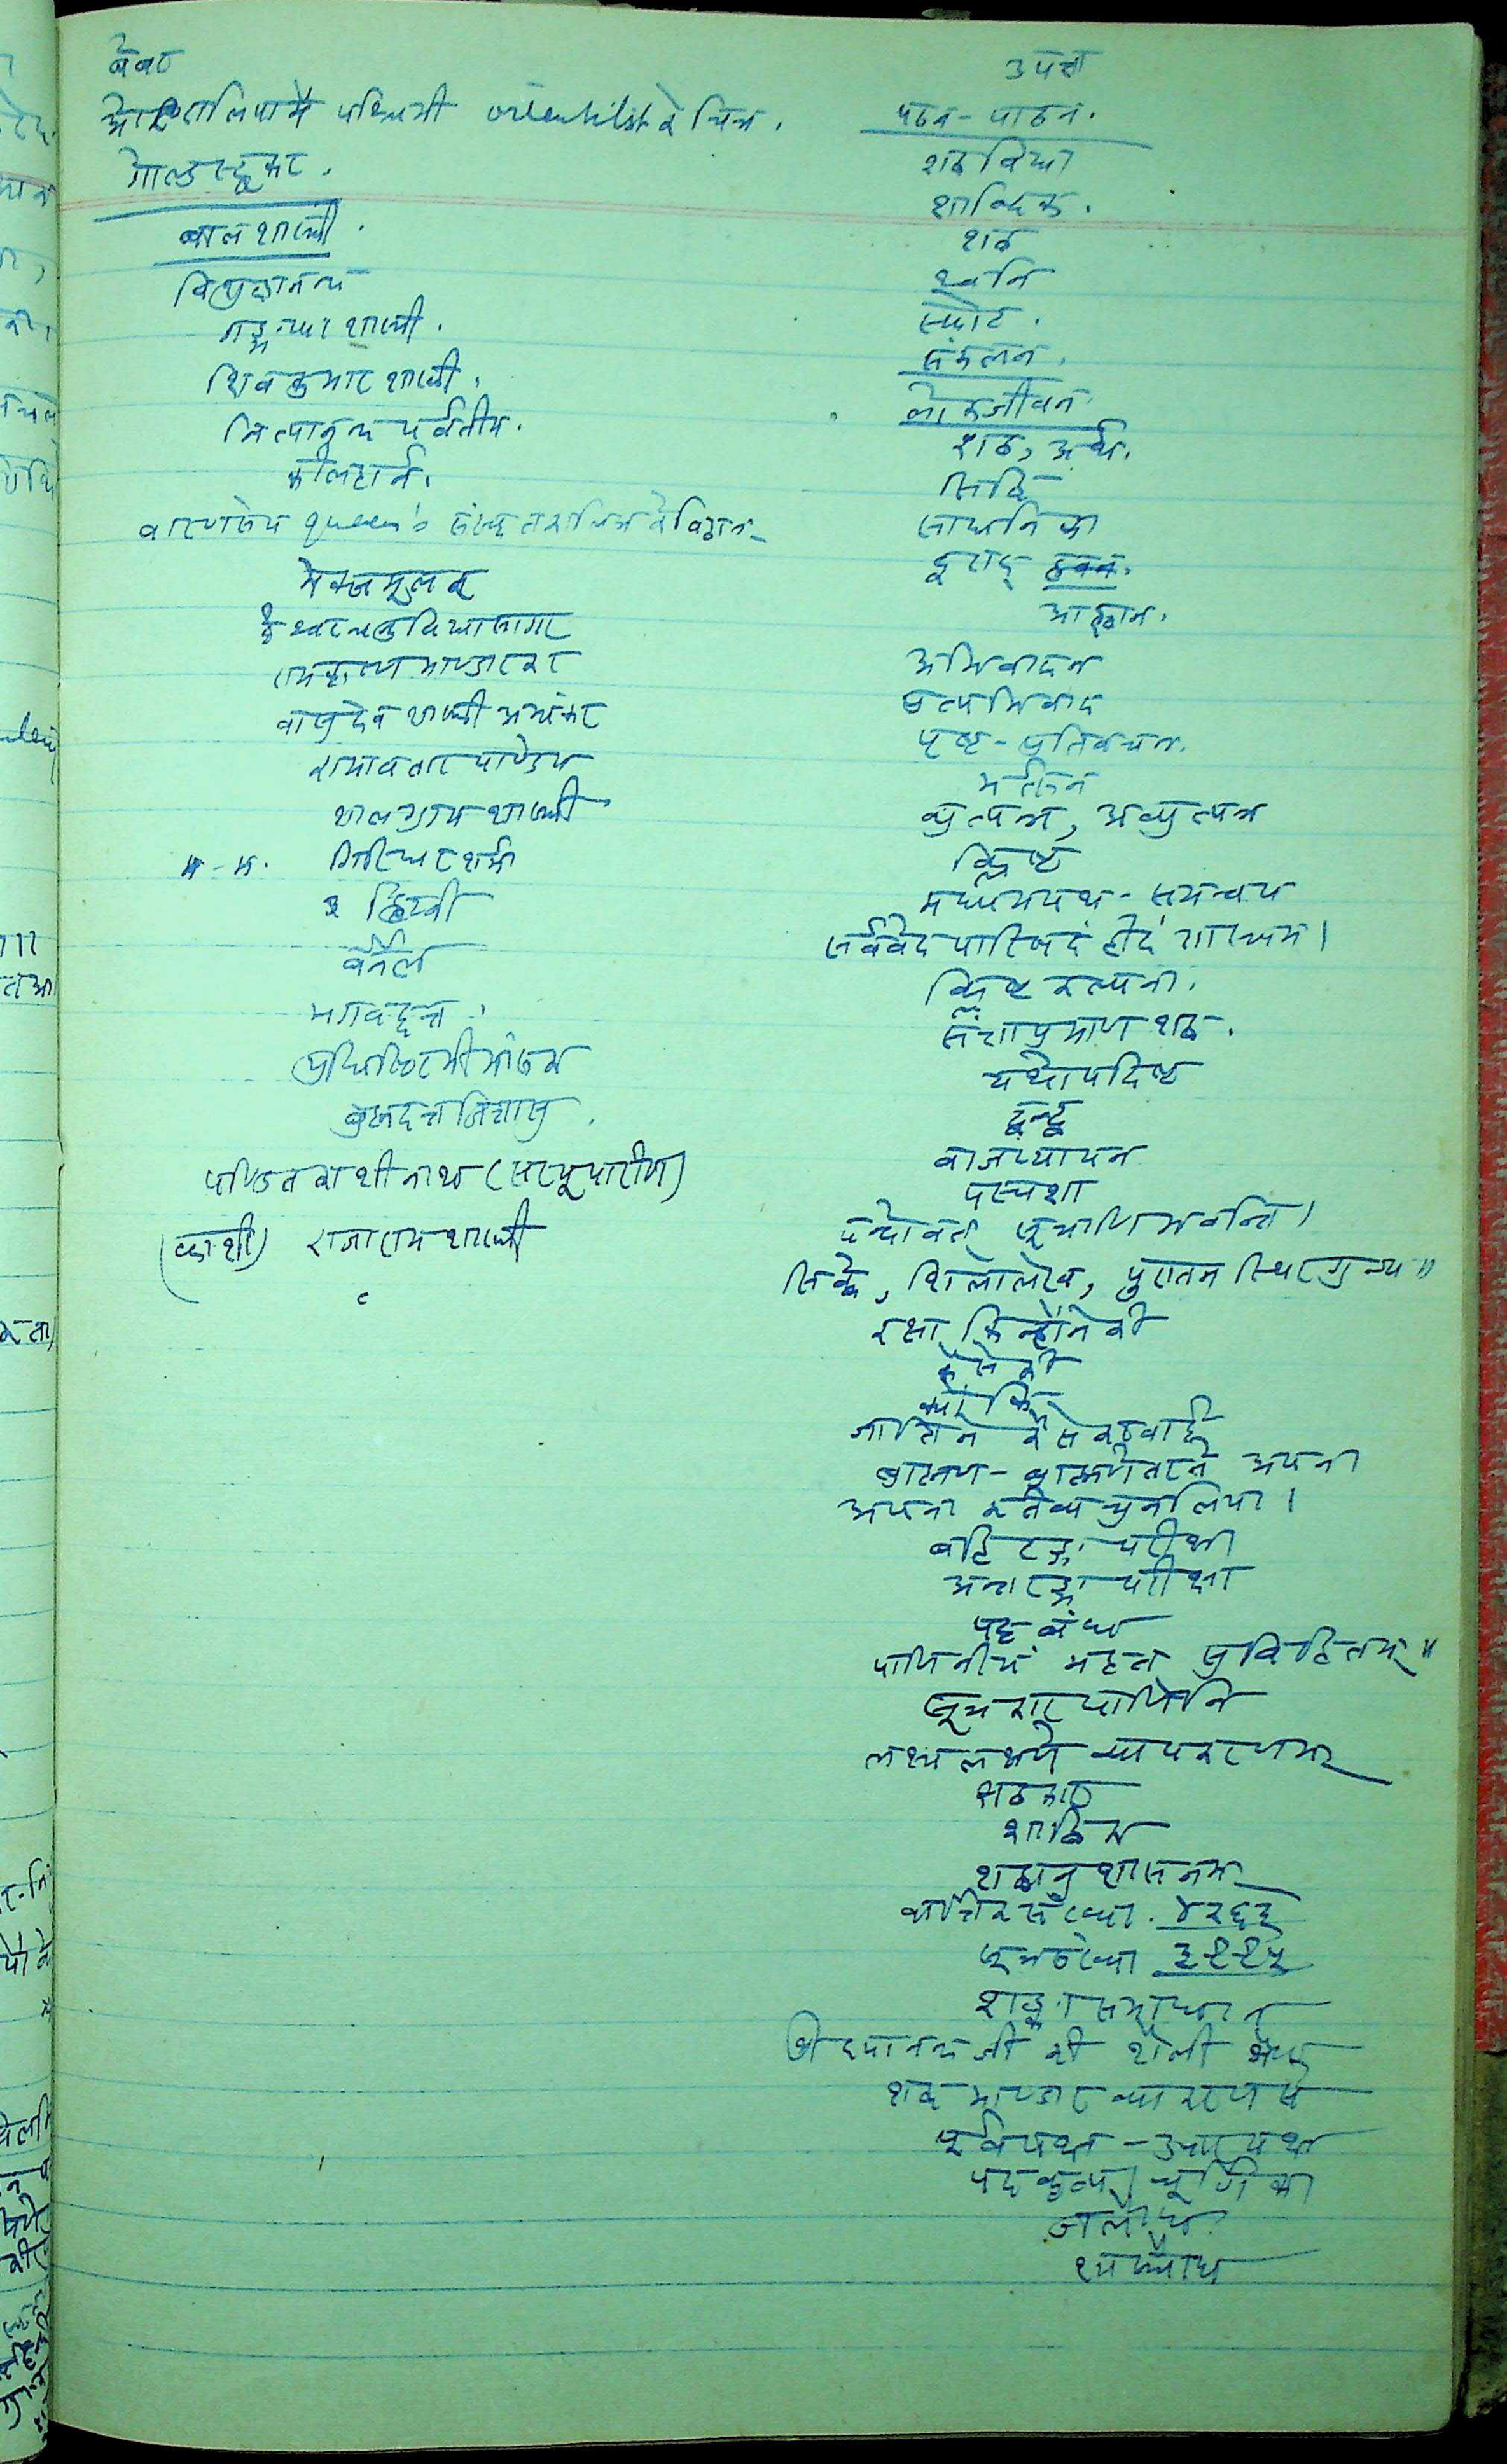 वेबर
पश्चिमी orientalist के चित्र.
गोल्डस्टूकर.
बालशास्त्री.
विशुद्धानन्द
गङ्गाधर शास्त्री.
शिवकुमार शास्त्री.
नित्यानन्द पर्वतीय.
कीलहार्न.
वाराणसेय queen's संस्कृत कालिज के विद्वान्
मेक्समूलर
ईश्वरचन्द्र विद्यासागर
रामकृष्ण भाण्डारकर
वासुदेव शास्त्री अभ्यंकर
रामावतार पाण्डेय
शालग्राम शास्त्री
म. म. गिरिधर शर्मा
द्विवेदी
बर्नेल
भगवद्दत्त.
युधिष्ठिर मीमांसक
ब्रह्मदत्त जिज्ञासु.
पण्डित काशीनाथ (सरयूपारीण)
(काशी) राजाराम शास्त्री
पठन-पाठन.
शब्दविद्या
शाब्दिक.
शब्द
ध्वनि
स्फोट.
संकलन.
लोकजीवन.
शब्द, अर्थ.
सिद्धि
साधनिका
दूराद्
आह्वान.
अभिवादन
प्रत्यभिवाद
पृष्ट-प्रतिवचन.
भर्त्सन
व्युत्पन्न, अव्युत्पन्न
क्लिष्ट
मध्यमपथ-समन्वय
सर्ववेदपारिषदं हीदं शास्त्रम्।
क्लिष्ट कल्पना.
संज्ञाप्रमाण शब्द.
यथोपदिष्ट
द्वन्द्व
वाजप्यायन
पस्पशा
छन्दोवत् सूत्राणि भवन्ति।
सिक्के, शिलालेख, पुरातन स्थिर ग्रन्थ"
रक्षा किन्होंने की
कैसे की
क्यों कि
जाति ने कैसे करवाई
ब्राह्मण-ब्राह्मणेतर ने अपना
अपना कर्तव्य चुन लिया।
बहिरङ्ग परीक्षा
अन्तरङ्ग परीक्षा
पाणिनीयं महत् सुविहितम्"
सूत्रकार पाणिनि
लक्ष्यलक्षणे व्याकरणम्
शाब्दिक
शब्दानुशासनम्
वार्त्तिक संख्या. ४२६३
सूत्रसंख्या
शङ्का समाधान
श्री दयानन्द जी की शैली श्रेष्ठ
शब्द भाण्डार व्याकरण से
पूर्वपक्ष-उत्तरपक्ष
पदकृत्य, चूर्णिका
शास्त्रार्थ